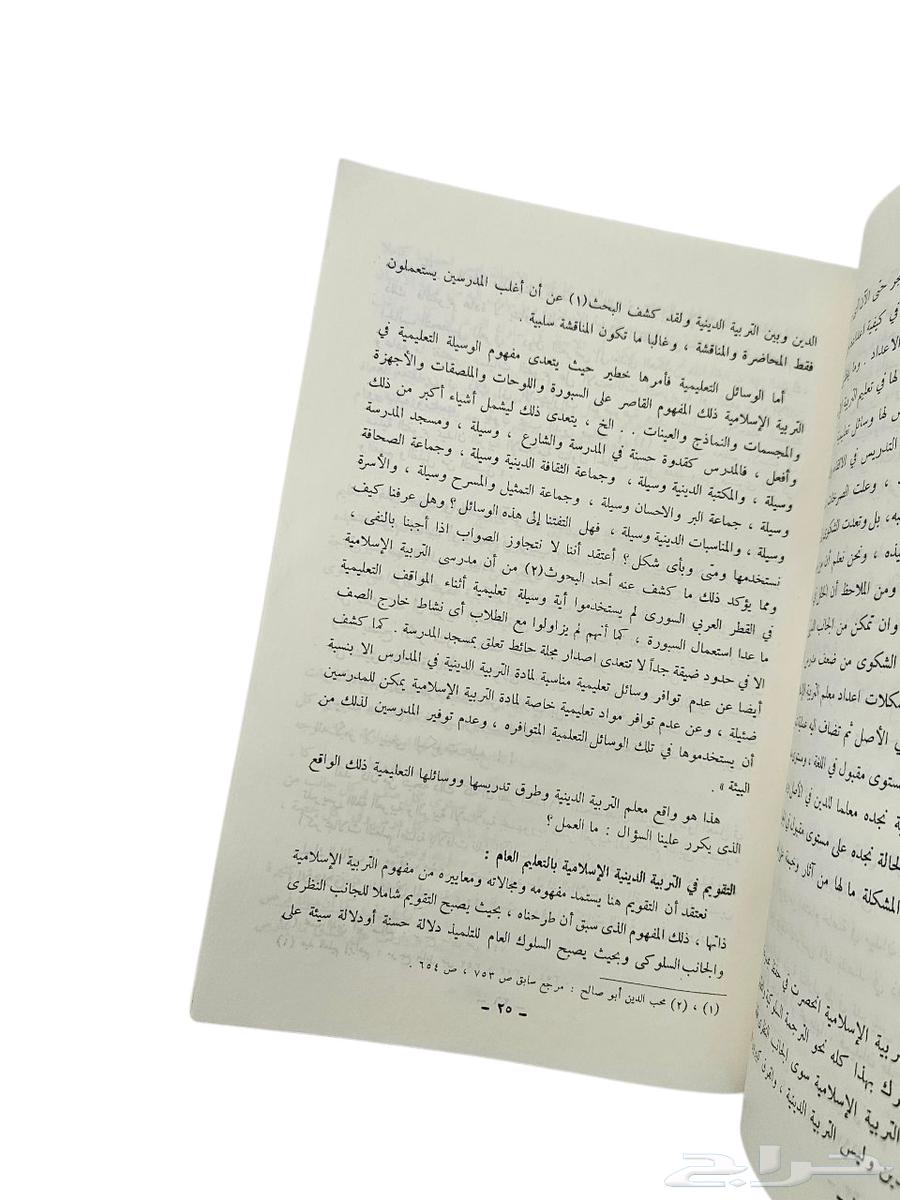 الدين وبين التربية الدينية ولقد كشف البحث(١) عن أن أغلب المدرسين يستعملون
فقط المحاضرة والمناقشة ، وغالبا ما تكون المناقشة سلبية .
أما الوسائل التعليمية فأمرها خطير حيث يتعدى مفهوم الوسيلة التعليمية في
التربية الإسلامية ذلك المفهوم القاصر على السبورة واللوحات والملصقات والأجهزة
والمجسمات والنماذج والعينات . . الخ ، يتعدى ذلك ليشمل أشياء أكبر من ذلك
وأفعل ، فالمدرس كقدوة حسنة في المدرسة والشارع ، وسيلة ، ومسجد المدرسة
وسيلة ، والمكتبة الدينية وسيلة ، وجماعة الثقافة الدينية وسيلة ، وجماعة الصحافة
وسيلة ، جماعة البر والاحسان وسيلة ، وجماعة التمثيل والمسرح وسيلة ، والأسرة
وسيلة ، والمناسبات الدينية وسيلة ، فهل التفتنا إلى هذه الوسائل؟ وهل عرفنا كيف
نستخدمها ومتى وبأى شكل؟ أعتقد أننا لا نتجاوز الصواب اذا أجبنا بالنفى ،
ومما يؤكد ذلك ما كشف عنه أحد البحوث(٢) من أن مدرسى التربية الإسلامية
في القطر العربي السورى لم يستخدموا أية وسيلة تعليمية أثناء المواقف التعليمية
ما عدا استعمال السبورة ، كما أنهم لم يزاولوا مع الطلاب أى نشاط خارج الصف
الا في حدود ضيقة جداً لا تتعدى اصدار مجلة حائط تعلق بمسجد المدرسة . كما كشف
أيضا عن عدم توافر وسائل تعليمية مناسبة لمادة التربية الدينية في المدارس الا بنسبة
ضئيلة ، وعن عدم توافر مواد تعليمية خاصة لمادة التربية الإسلامية يمكن للمدرسين
أن يستخدموها في تلك الوسائل التعلمية المتوافره ، وعدم توفير المدرسين لذلك من
البيئة » .
هذا هو واقع معلم التربية الدينية وطرق تدريسها ووسائلها التعليمية ذلك الواقع
الذى يكرر علينا السؤال : ما العمل؟
التقويم في التربية الدينية الإسلامية بالتعليم العام :
نعتقد أن التقويم هنا يستمد مفهومه ومجالاته ومعاييره من مفهوم التربية الإسلامية
ذاتها ، ذلك المفهوم الذى سبق أن طرحناه ، بحيث يصبح التقويم شاملا للجانب النظرى
والجانب السلوكى وبحيث يصبح السلوك العام للتلميذ دلالة حسنة أودلالة سيئة على
(١) ، (٢) محب الدين أبو صالح : مرجع سابق ص ٧٥٣ ، ص ٦٥٤ .
- ٢٥ -
حراج